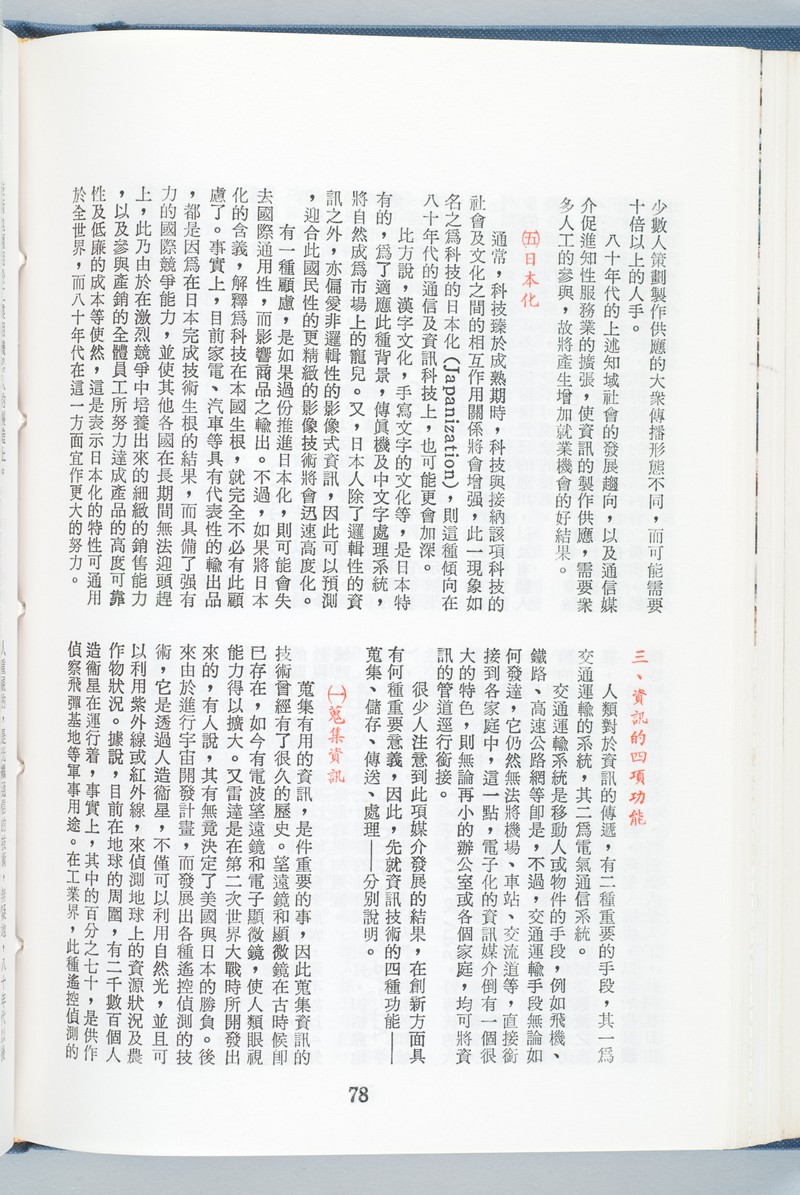 少數人策劃製作供應的大衆傳播形態不同，而可能需要
十倍以上的人手。
八十年代的上述知域社會的發展趨向，以及通信媒
介促進知性服務業的擴張，使資訊的製作供應，需要衆
多人工的參與，故將產生增加就業機會的好結果。
㈤日本化
通常，科技臻於成熟期時，科技與接納該項科技的
社會及文化之間的相互作用關係將會增强，此一現象如
名之爲科技的日本化（Japanization），則這種傾向在
八十年代的通信及資訊科技上，也可能更會加深。
比方說，漢字文化，手寫文字的文化等，是日本特
有的，爲了適應此種背景，傳眞機及中文字處理系統，
將自然成爲市場上的寵兒。又，日本人除了邏輯性的資
訊之外，亦偏愛非邏輯性的影像式資訊，因此可以預測
，迎合此國民性的更精緻的影像技術將會迅速高度化。
有一種顧慮，是如果過份推進日本化，則可能會失
去國際通用性，而影響商品之輸出。不過，如果將日本
化的含義，解釋爲科技在本國生根，就完全不必有此顧
慮了。事實上，目前家電、汽車等具有代表性的輸出品
，都是因爲在日本完成技術生根的結果，而具備了强有
力的國際競爭能力，並使其他各國在長期間無法迎頭趕
上，此乃由於在激烈競爭中培養出來的細緻的銷售能力
，以及參與產銷的全體員工所努力達成產品的高度可靠
性及低廉的成本等使然，這是表示日本化的特性可通用
於全世界，而八十年代在這一方面宜作更大的努力。
三、資訊的四項功能
人類對於資訊的傳遞，有二種重要的手段，其一爲
交通運輸的系統，其二爲電氣通信系統。
交通運輸系統是移動人或物件的手段，例如飛機、
鐵路、高速公路網等卽是，不過，交通運輸手段無論如
何發達，它仍然無法將機場、車站、交流道等，直接銜
接到各家庭中，這一點，電子化的資訊媒介倒有一個很
大的特色，則無論再小的辦公室或各個家庭，均可將資
訊的管道逕行銜接。
很少人注意到此項媒介發展的結果，在創新方面具
有何種重要意義，因此，先就資訊技術的四種功能——
蒐集、儲存、傳送、處理——分別說明。
㈠蒐集資訊
蒐集有用的資訊，是件重要的事，因此蒐集資訊的
技術曾經有了很久的歷史。望遠鏡和顯微鏡在古時候卽
已存在，如今有電波望遠鏡和電子顯微鏡，使人類眼視
能力得以擴大。又雷達是在第二次世界大戰時所開發出
來的，有人說，其有無竟決定了美國與日本的勝負。後
來由於進行宇宙開發計畫，而發展出各種遙控偵測的技
術，它是透過人造衞星，不僅可以利用自然光，並且可
以利用紫外線或紅外線，來偵測地球上的資源狀況及農
作物狀況。據說，目前在地球的周圍，有二千數百個人
造衞星在運行着，事實上，其中的百分之七十，是供作
偵察飛彈基地等軍事用途。在工業界，此種遙控偵測的
78